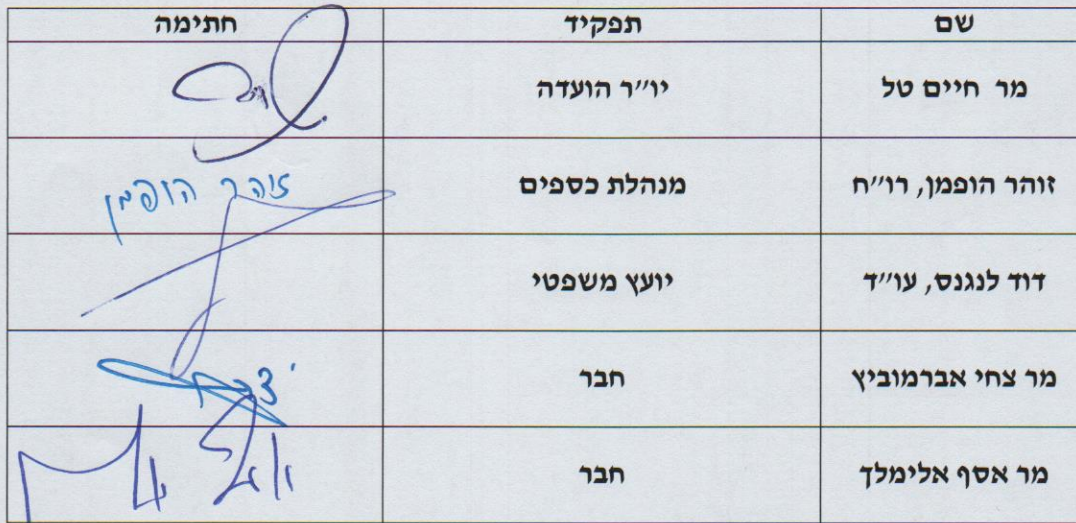 שם תפקיד חתימה
מר חיים טל יו"ר הועדה
זוהר הופמן, רו"ח מנהלת כספים זוהר הופמן
דוד לנגנס, עו"ד יועץ משפטי
מר צחי אברמוביץ חבר
מר אסף אלימלך חבר